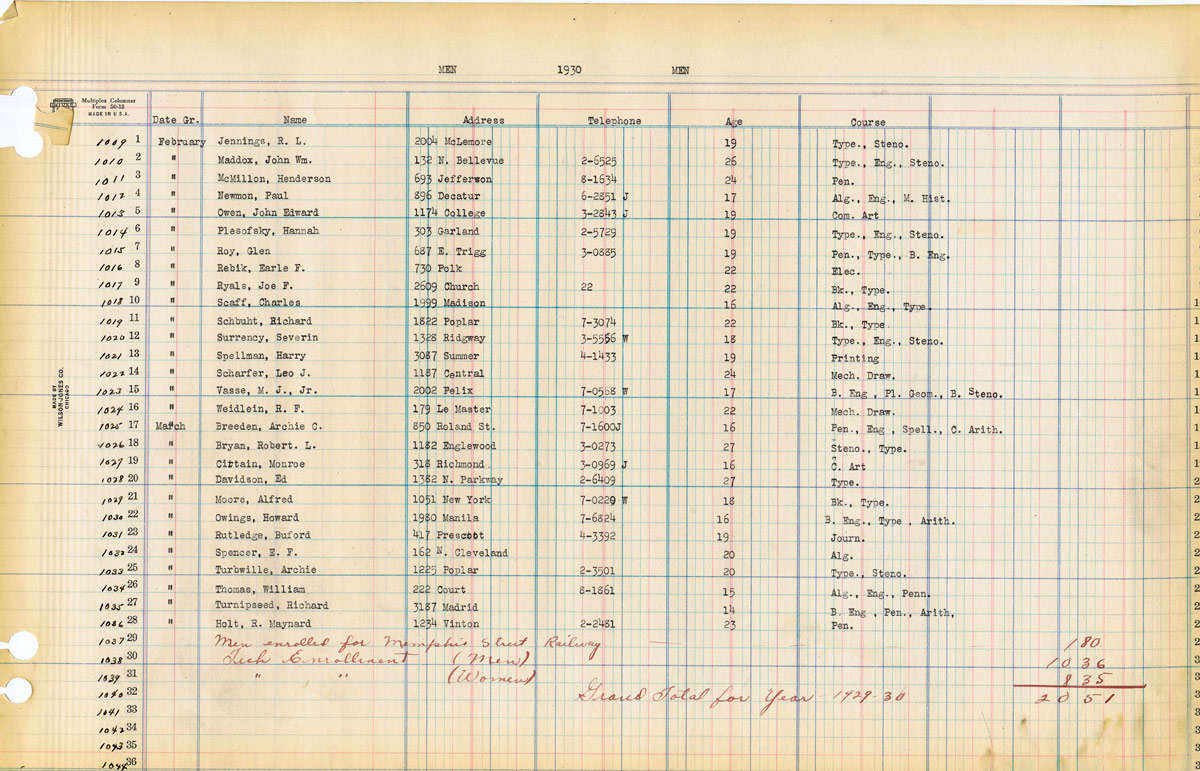 MEN 1930 MEN
Multiplex Columnar
Form 50-12
MADE IN U.S.A.
Date Gr. Name Address Telephone Age Course
1009 1 February Jennings, R. L. 2004 McLemore 19 Type., Steno.
1010 2 " Maddox, John Wm. 132 N. Bellevue 2-6525 26 Type., Eng., Steno.
1011 3 " McMillon, Henderson 693 Jefferwon 8-1634 24 Pen.
1012 4 " Newmon, Paul 896 Decatur 6-2851 J 17 Alg., Eng., M. Hist.
1013 5 " Owen, John Edward 1174 College 3-2843 J 19 Com. Art
1014 6 " Plesofsky, Hannah 303 Garland 2-5729 19 Type., Eng., Steno.
1015 7 " Roy, Glen 687 E. Trigg 3-0885 19 Pen., Type., B. Eng.
1016 8 " Rebik, Earle F. 730 Polk 22 Elec.
1017 9 " Ryals, Joe F. 2609 Church 22 22 Bk., Type.
1018 10 " Scaff, Charles 1999 Madison 16 Alg., Eng., Type.
1019 11 " Schbuht, Richard 1822 Poplar 7-3074 22 Bk., Type
1020 12 " Surrency, Severin 1328 Ridgway 3-5556 W 18 Type., Eng., Steno.
1021 13 " Spellman, Harry 3087 Summer 4-1433 19 Printing
1022 14 " Scharfer, Leo J. 1187 Central 24 Mech. Draw.
1023 15 " Vasse, M. J., Jr. 2002 Felix 7-0568 W 17 B. Eng , Pl. Geom., B. Steno.
1024 16 " Weidlein, R. F. 179 Le Master 7-1003 22 Mech. Draw.
1025 17 March Breeden, Archie C. 850 Roland St. 7-1600J 16 Pen., Eng , Spell., C. Arith.
1026 18 " Bryan, Robert. L. 1182 Englewood 3-0273 27 Steno., Type.
1027 19 " Cittain, Monroe 318 Richmond 3-0969 J 16 C. Art
1028 20 " Davidson, Ed 1382 N. Parkway 2-6409 27 Type.
1029 21 " Moore, Alfred 1051 New York 7-0229 W 18 Bk., Type.
1030 22 " Owings, Howard 1980 Manila 7-6824 16 B. Eng., Type , Arith.
1031 23 " Rutledge, Buford 417 Prescott 4-3392 19 Journ.
1032 24 " Spencer, E. F. 162 N. Cleveland 20 Alg.
1033 25 " Turbwille, Archie 1225 Poplar 2-3501 20 Type., Steno.
1034 26 " Thomas, William 222 Court 8-1861 15 Alg., Eng., Penn.
1035 27 " Turnipseed, Richard 3187 Madrid 14 B. Eng , Pen., Arith,
1036 28 " Holt, R. Maynard 1234 Vinton 2-2481 23 Pen.
1037 29 Men enrolled for Memphis Street Railway — 180
1038 30 Tech Enrollment (Men) 1036
1039 31 " " (Women) 835
1040 32 Grand Total for Year 1929-30 2051
1041 33
1042 34
1043 35
1044 36
MADE BY
WILSON-JONES CO.
CHICAGO